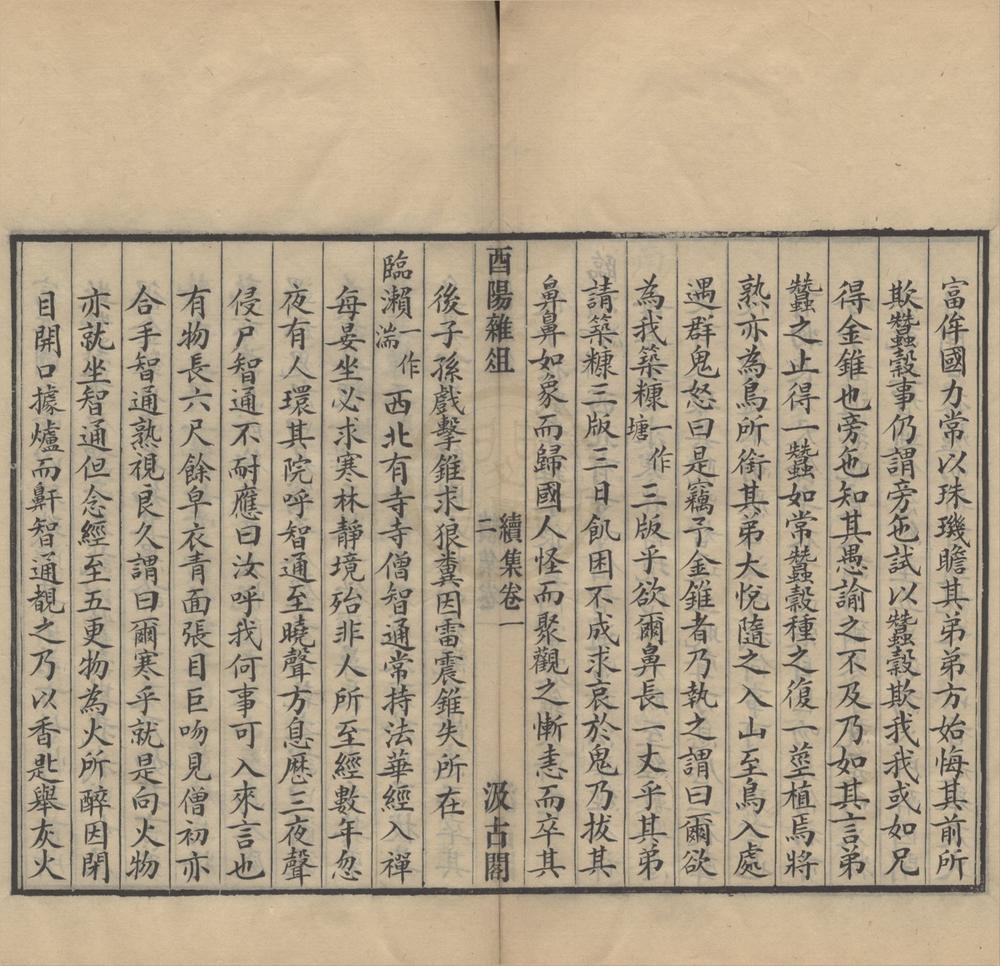 富侔國力常以珠璣贍其弟弟方始悔其前所
欺蠶穀事仍謂旁㐌試以蠶穀欺我我或如兄
得金錐也旁㐌知其愚諭之不及乃如其言弟
蠶之止得一蠶如常蠶穀種之復一莖植焉將
熟亦為鳥所銜其弟大悅隨之入山至鳥入處
遇群鬼怒曰是竊予金錐者乃執之謂曰爾欲
為我築糠一作塘三版乎欲爾鼻長一丈乎其弟
請築糠三版三日飢困不成求哀於鬼乃拔其
鼻鼻如象而歸國人怪而聚觀之慚恚而卒其
酉陽雜俎 續集卷一 二 汲古閣
後子孫戲擊錐求狼糞因雷震錐失所在
臨瀨一作湍西北有寺寺僧智通常持法華經入禪
每晏坐必求寒林靜境殆非人所至經數年忽
夜有人環其院呼智通至曉聲方息歷三夜聲
侵戶智通不耐應曰汝呼我何事可入來言也
有物長六尺餘皁衣青面張目巨吻見僧初亦
合手智通熟視良久謂曰爾寒乎就是向火物
亦就坐智通但念經至五更物為火所醉因閉
目開口據爐而鼾智通覩之乃以香匙舉灰火